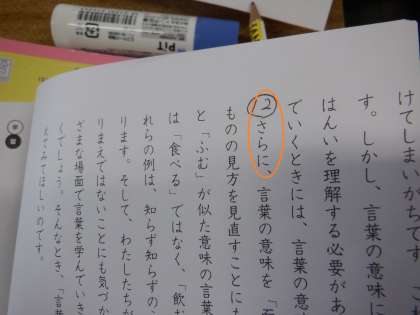 けてしまいかねてす。
す。しかし、言葉の意味に
はんいを理解する必要があ
ていくときには、言葉の意
12
さらに、言葉の意味を「面
ものの見方を見直すことにも
と「ふむ」が似た意味の言葉
は「食べる」ではなく、「飲む
れらの例は、知らず知らずの
ります。そして、わたしたちが
りまえではないことにも気づか
ざまな場面で言葉を学んでいき
くでしょう。そんなとき、「言
えてみてほしいのです。
PiT